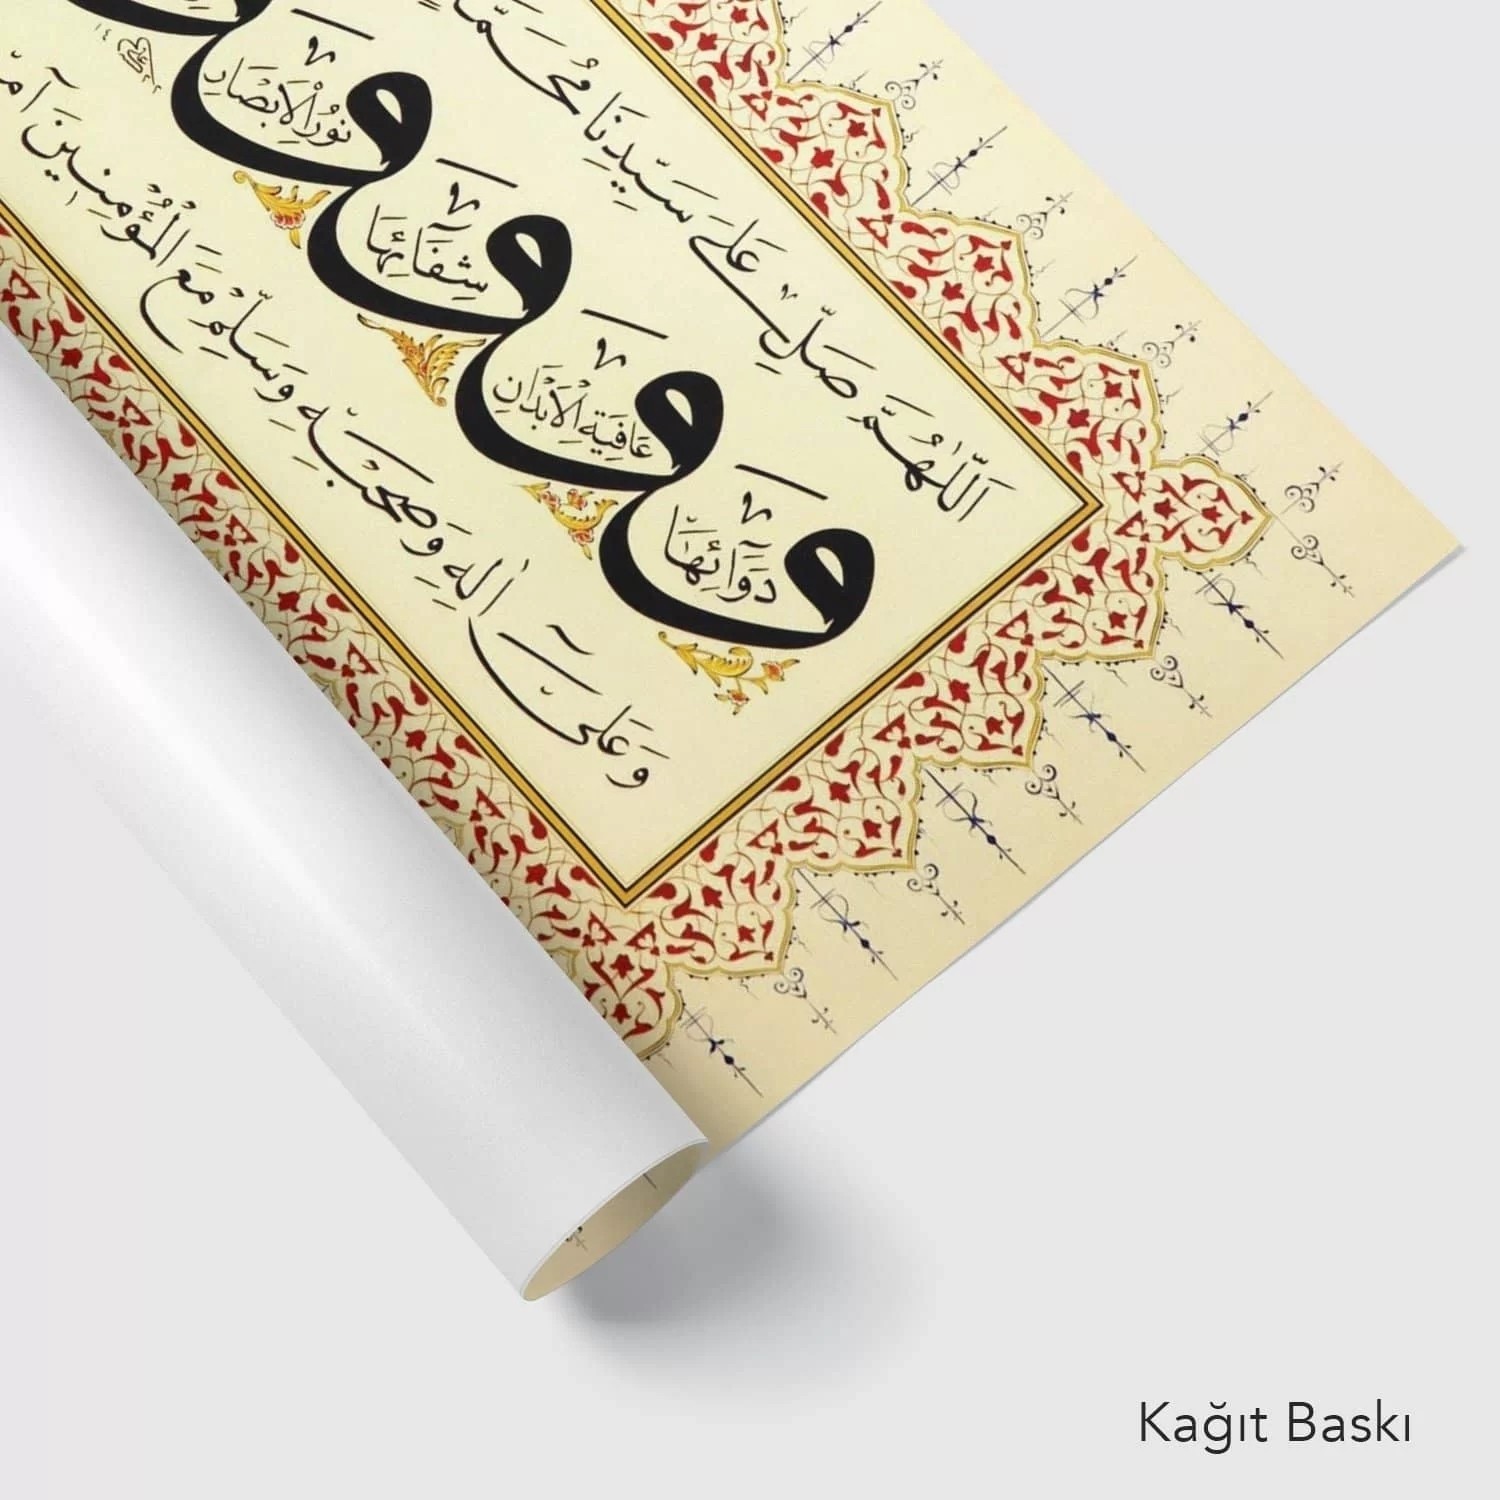 اَللّٰهُمَّ صَلِّ عَلٰى سَيِّدِنَا مُحَمَّدٍ
وَ دَوَآئِهَا وَ عَافِيَةِ الْاَبْدَانِ وَ شِفَائِهَا وَ نُورُ الْاَبْصَارِ
وَعَلٰٓى اٰلِهِ وَصَحْبِهِ وَسَلِّمْ مَعَ الْمُؤْمِنِينَ
Kağıt Baskı